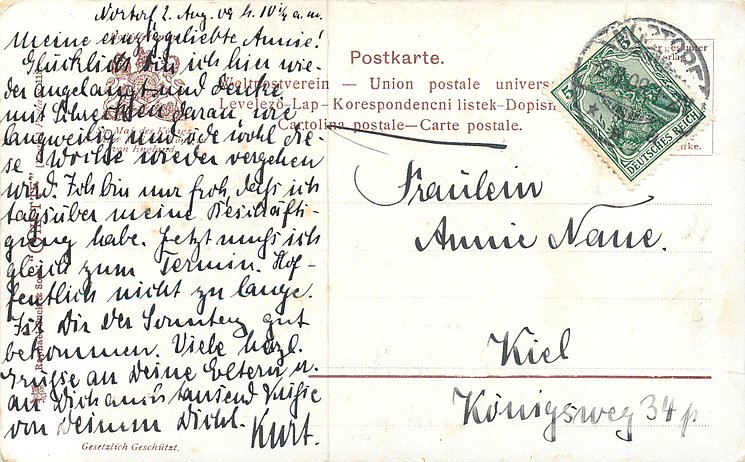 Nortorf 2. Aug. 09 10 1/2 a.m.
Meine einziggeliebte Annie!
Glücklich bin ich hier wie-
der angelangt und denke
mit Schrecken daran wie
langweilig und öde wohl die-
se Woche wieder vergehen
wird. Ich bin nur froh, daß ich
tagsüber meine Beschäfti-
gung habe. Jetzt muß ich
gleich zum Termin. Hof-
fentlich nicht zu lange.
Ist Dir der Sonntag gut
bekommen. Viele herzl.
Grüße an Deine Eltern u.
an Dich auch tausend Küsse
von Deinem Dichl.
Kurt.
Gesetzlich Geschützt.
Postkarte.
Weltpostverein — Union postale univers
Levelező-Lap — Korespondencni listek — Dopisn
Cartolina postale — Carte postale.
5
5
DEUTSCHES REICH
NORTORF
Fräulein
Annie Naue.
Kiel
Königsweg 34 p